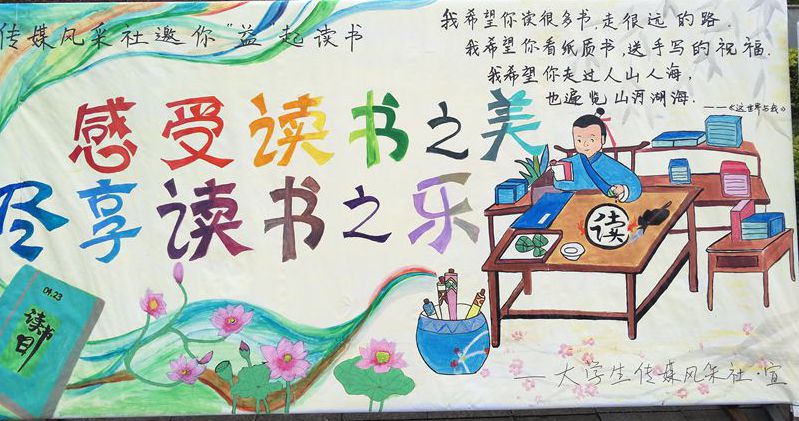 传媒风采社邀你"益"起读书
我希望你读很多书,走很远的路.
我希望你看纸质书,送手写的祝福.
我希望你走过人山人海,
也遍览山河湖海.
——《这世界与我》
感受读书之美
尽享读书之乐
读
04.23
读书日
—大学生传媒风采社·宣